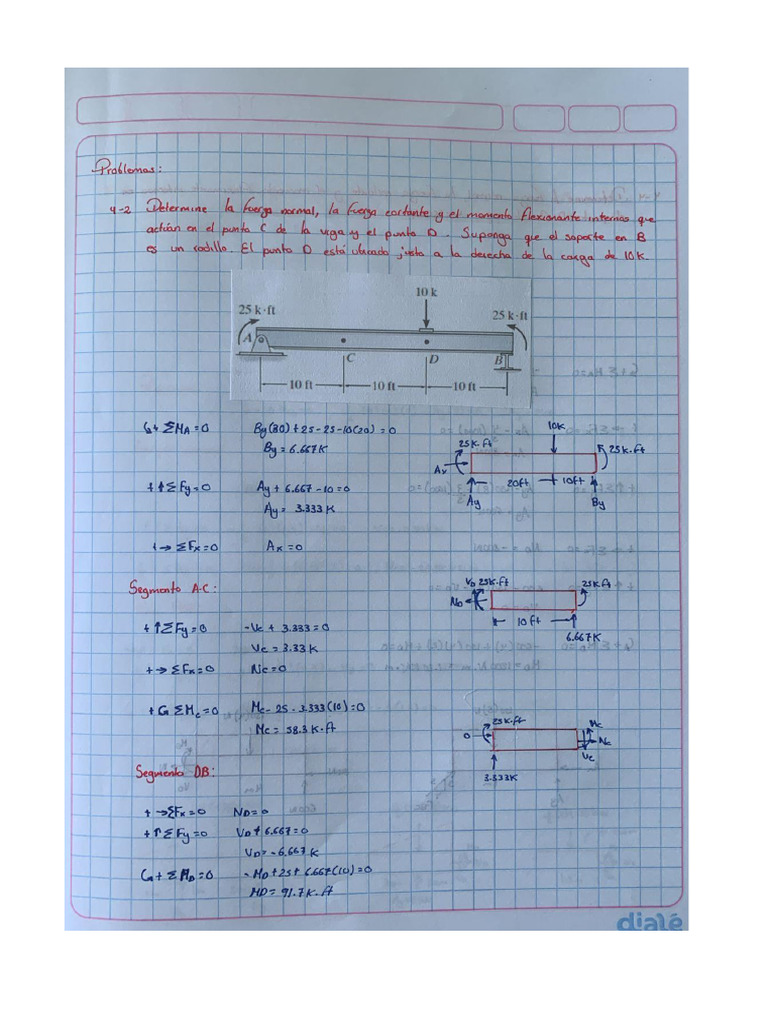 Problemas:
4-2 Determine la fuerza normal, la fuerza cortante y el momento flexionante internos que
actúan en el punto C de la viga y el punto D. Suponga que el soporte en B
es un rodillo. El punto D está ubicado justo a la derecha de la carga de 10k.
10 k
25 k·ft
25 k·ft
A
C
D
B
10 ft
10 ft
10 ft
↺+ ΣMA=0 By(30)+25-25-10(20)=0
By=6.667K
+↑ΣFy=0 Ay+6.667-10=0
Ay= 3.333K
+→ΣFx=0 Ax=0
10K
25K·ft
25K·ft
Ax
20ft
10ft
Ay
By
Segmento A-C:
+↑ΣFy=0 -Vc+3.333=0
Vc=3.33K
+→ΣFx=0 Nc=0
+↺ΣMc=0 Mc-25-3.333(10)=0
Mc=58.3K·ft
VD 25K·ft
25K·ft
ND
10ft
6.667K
25K·ft
Mc
0
Nc
Vc
3.333K
Segmento DB:
+→ΣFx=0 ND=0
+↑ΣFy=0 VD+6.667=0
VD=-6.667K
↺+ΣMD=0 -MD+25+6.667(10)=0
MD=91.7K·ft
dialé